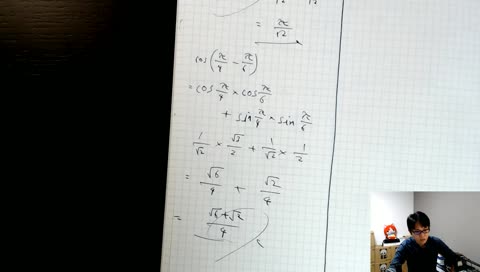 = π/√2
cos(π/4 - π/6)
= cos π/4 × cos π/6
+ sin π/4 × sin π/6
1/√2 × √3/2 + 1/√2 × 1/2
= √6/4 + √2/4
= (√6+√2)/4